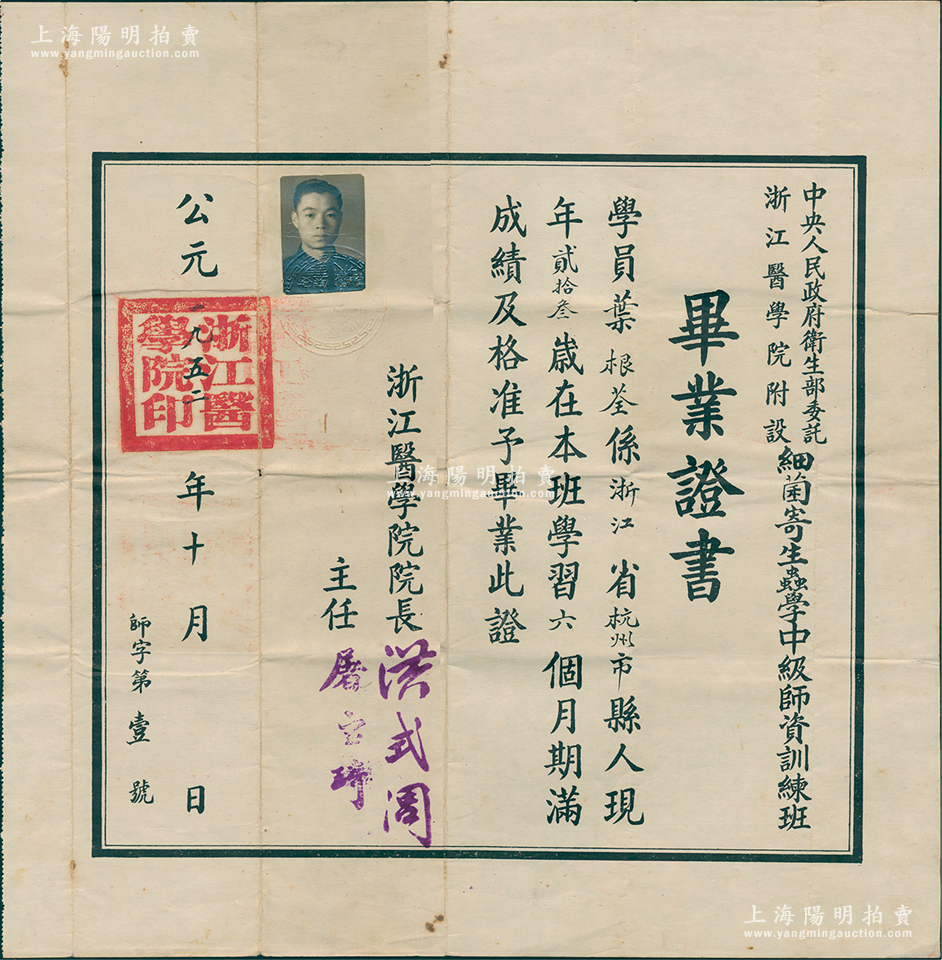 上海陽明拍賣
www.yangmingauction.com
中央人民政府衛生部委託
浙江醫學院附設
細菌寄生蟲學中級師資訓練班
畢業證書
學員葉根荃係浙江省杭州市縣人現
年貳拾叁歲在本班學習六個月期滿
成績及格准予畢業此證
浙江醫學院院長 洪式閭
主任
公元一九五二年十月 日
師字第壹號
浙江醫學院印
上海陽明拍賣
www.yangmingauction.com
上海陽明拍賣
www.yangmingauction.com